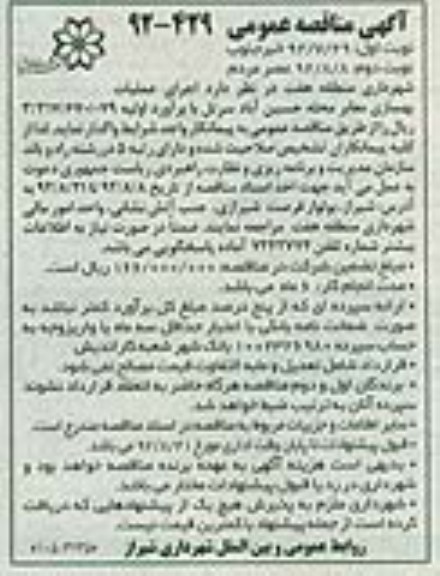 آگهی مناقصه عمومی ۴۲۹-۹۲
نوبت اول: ۹۲/۷/۲۹ خبر جنوب
نوبت دوم: ۹۲/۸/۸ عصر مردم
شهرداری منطقه هفت در نظر دارد اجرای عملیات
بهسازی معابر محله حسین آباد سرتل با برآورد اولیه
ریال را از طریق مناقصه عمومی به پیمانکار واجد شرایط واگذار نماید. لذا از
کلیه پیمانکاران تشخیص صلاحیت شده و دارای رتبه ۵ در رشته راه و باند
سازمان مدیریت و برنامه ریزی و نظارت راهبردی ریاست جمهوری دعوت
به عمل می آید جهت اخذ اسناد مناقصه از تاریخ ۹۲/۸/۸ تا ۹۲/۸/۲۱ به
آدرس: شیراز، بولوار فرصت شیرازی، جنب آتش نشانی، واحد امور مالی
شهرداری منطقه هفت مراجعه نمایند. ضمنا در صورت نیاز به اطلاعات
بیشتر شماره تلفن آماده پاسخگویی می باشد.
• مبلغ تضمین شرکت در مناقصه: ریال است.
• مدت انجام کار: ماه می باشد.
• ارائه سپرده ای که از پنج درصد مبلغ کل برآورد کمتر نباشد به
صورت ضمانت نامه بانکی با اعتبار حداقل سه ماه یا واریز وجه به
حساب سپرده بانک شهر شعبه کاراندیش
• قرارداد شامل تعدیل و مابه التفاوت قیمت مصالح نمی شود.
• برندگان اول و دوم مناقصه هرگاه حاضر به انعقاد قرارداد نشوند
سپرده آنان به ترتیب ضبط خواهد شد.
• سایر اطلاعات و جزییات مربوط به مناقصه در اسناد مناقصه مندرج است.
• قبول پیشنهادات تا پایان وقت اداری مورخ می باشد.
• بدیهی است هزینه آگهی به عهده برنده مناقصه خواهد بود و
شهرداری در رد یا قبول پیشنهادات مختار می باشد.
• شهرداری ملزم به پذیرش هیچ یک از پیشنهادهایی که دریافت
کرده است از جمله پیشنهاد با کمترین قیمت نیست.
روابط عمومی و بین الملل شهرداری شیراز